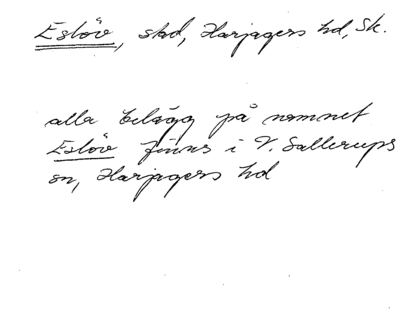 Eslöv, stad, Harjagers hd, Sk.
alla belägg på namnet
Eslöv finns i V. Sallerups
sn, Harjagers hd